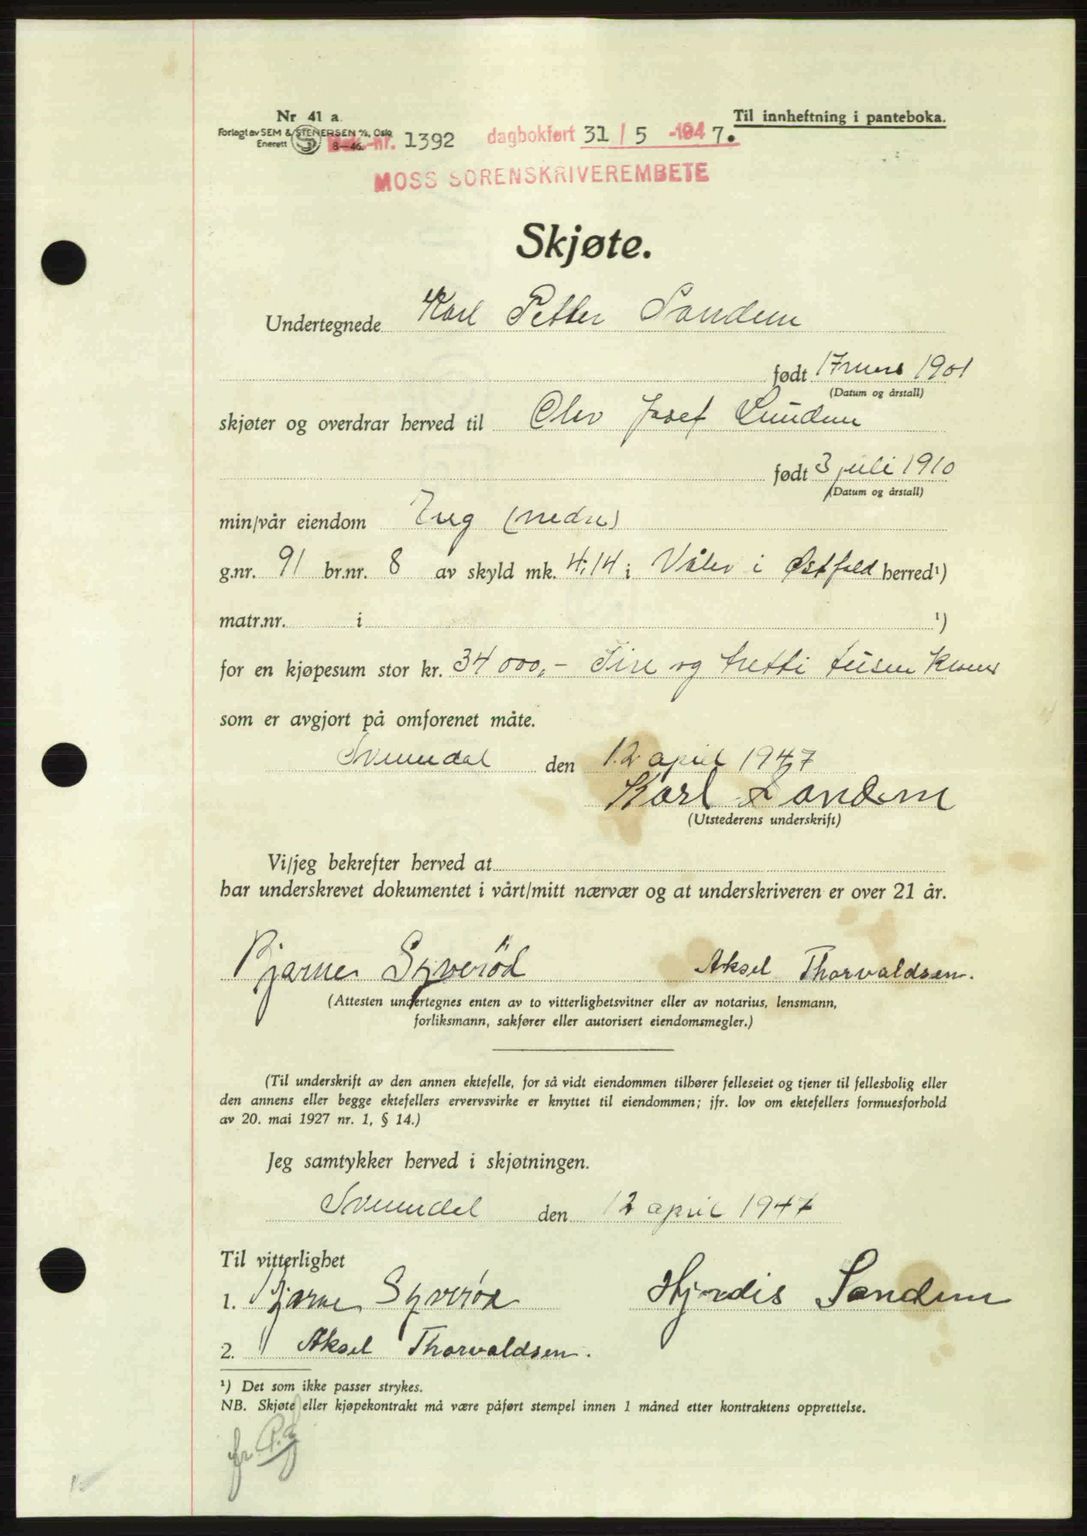 Nr 41 a.
Til innheftning i panteboka.
Forlagt av SEM & STENERSEN A/S, Oslo
Enerett S 8-46.
nr. 1392 dagbokført 31/5 -1947.
MOSS SORENSKRIVEREMBETE
Skjøte.
Undertegnede Karl Petter Sandem
født 17 mars 1901
(Datum og årstall)
skjøter og overdrar herved til Olav Josef Sundem
født 3 juli 1910
(Datum og årstall)
min/vår eiendom (nedre)
g.nr. 91 br.nr. 8 av skyld mk. 4,14 i Våler i Østfold herred¹)
matr.nr. i ¹)
for en kjøpesum stor kr. 34 000,- Fire og tretti tusen kroner
som er avgjort på omforenet måte.
Svinndal den 12 april 1947
Karl Sandem
(Utstederens underskrift)
Vi/jeg bekrefter herved at
har underskrevet dokumentet i vårt/mitt nærvær og at underskriveren er over 21 år.
Bjarne Syverød Aksel Thorvaldsen.
(Attesten undertegnes enten av to vitterlighetsvitner eller av notarius, lensmann,
forliksmann, sakfører eller autorisert eiendomsmegler.)
(Til underskrift av den annen ektefelle, for så vidt eiendommen tilhører felleseiet og tjener til fellesbolig eller
den annens eller begge ektefellers ervervsvirke er knyttet til eiendommen; jfr. lov om ektefellers formuesforhold
av 20. mai 1927 nr. 1, § 14.)
Jeg samtykker herved i skjøtningen.
Svinndal den 12 april 1947
Til vitterlighet
1. Bjarne Syverød Hjordis Sandem
2. Aksel Thorvaldsen.
¹) Det som ikke passer strykes.
NB. Skjøte eller kjøpekontrakt må være påført stempel innen 1 måned etter kontraktens opprettelse.